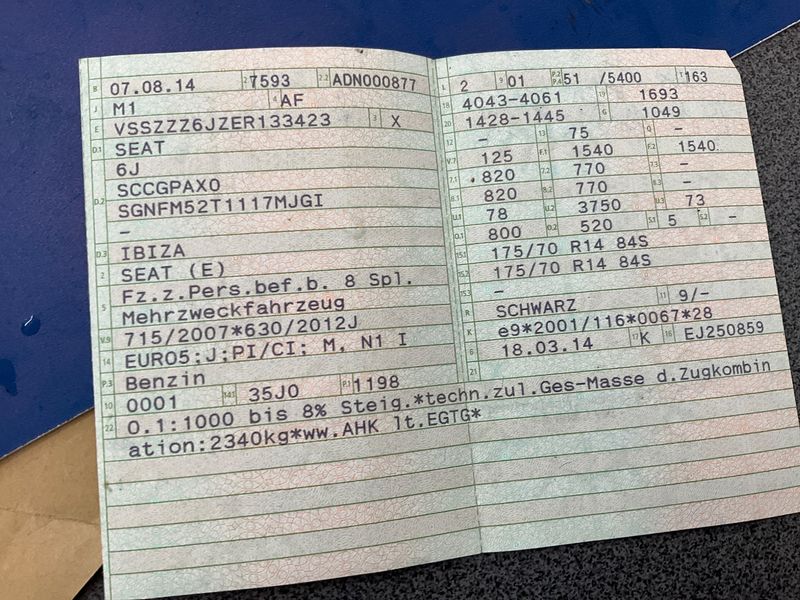 B 07.08.14 2 7593 2.2 ADN000877
J M1 4 AF
E VSSZZZ6JZER133423 3 X
D.1 SEAT
6J
D.2 SCCGPAX0
SGNFM52T1117MJGI
–
D.3 IBIZA
2 SEAT (E)
5 Fz.z.Pers.bef.b. 8 Spl.
Mehrzweckfahrzeug
V.9 715/2007*630/2012J
14 EURO5;J;PI/CI; M, N1 I
P.3 Benzin
10 0001 14.1 35J0 P.1 1198
22 O.1:1000 bis 8% Steig.*techn.zul.Ges-Masse d.Zugkombin
ation:2340kg*ww.AHK lt.EGTG*
L 2 9 01 P.2 P.4 51 /5400 T 163
18 4043-4061 19 1693
20 1428-1445 G 1049
12 – 13 75 Q –
V.7 125 F.1 1540 F.2 1540
7.1 820 7.2 770 7.3 –
8.1 820 8.2 770 8.3 –
U.1 78 U.2 3750 U.3 73
O.1 800 O.2 520 S.1 5 S.2 –
15.1 175/70 R14 84S
15.2 175/70 R14 84S
15.3 –
R SCHWARZ 11 9/-
K e9*2001/116*0067*28
6 18.03.14 17 K 16 EJ250859
21